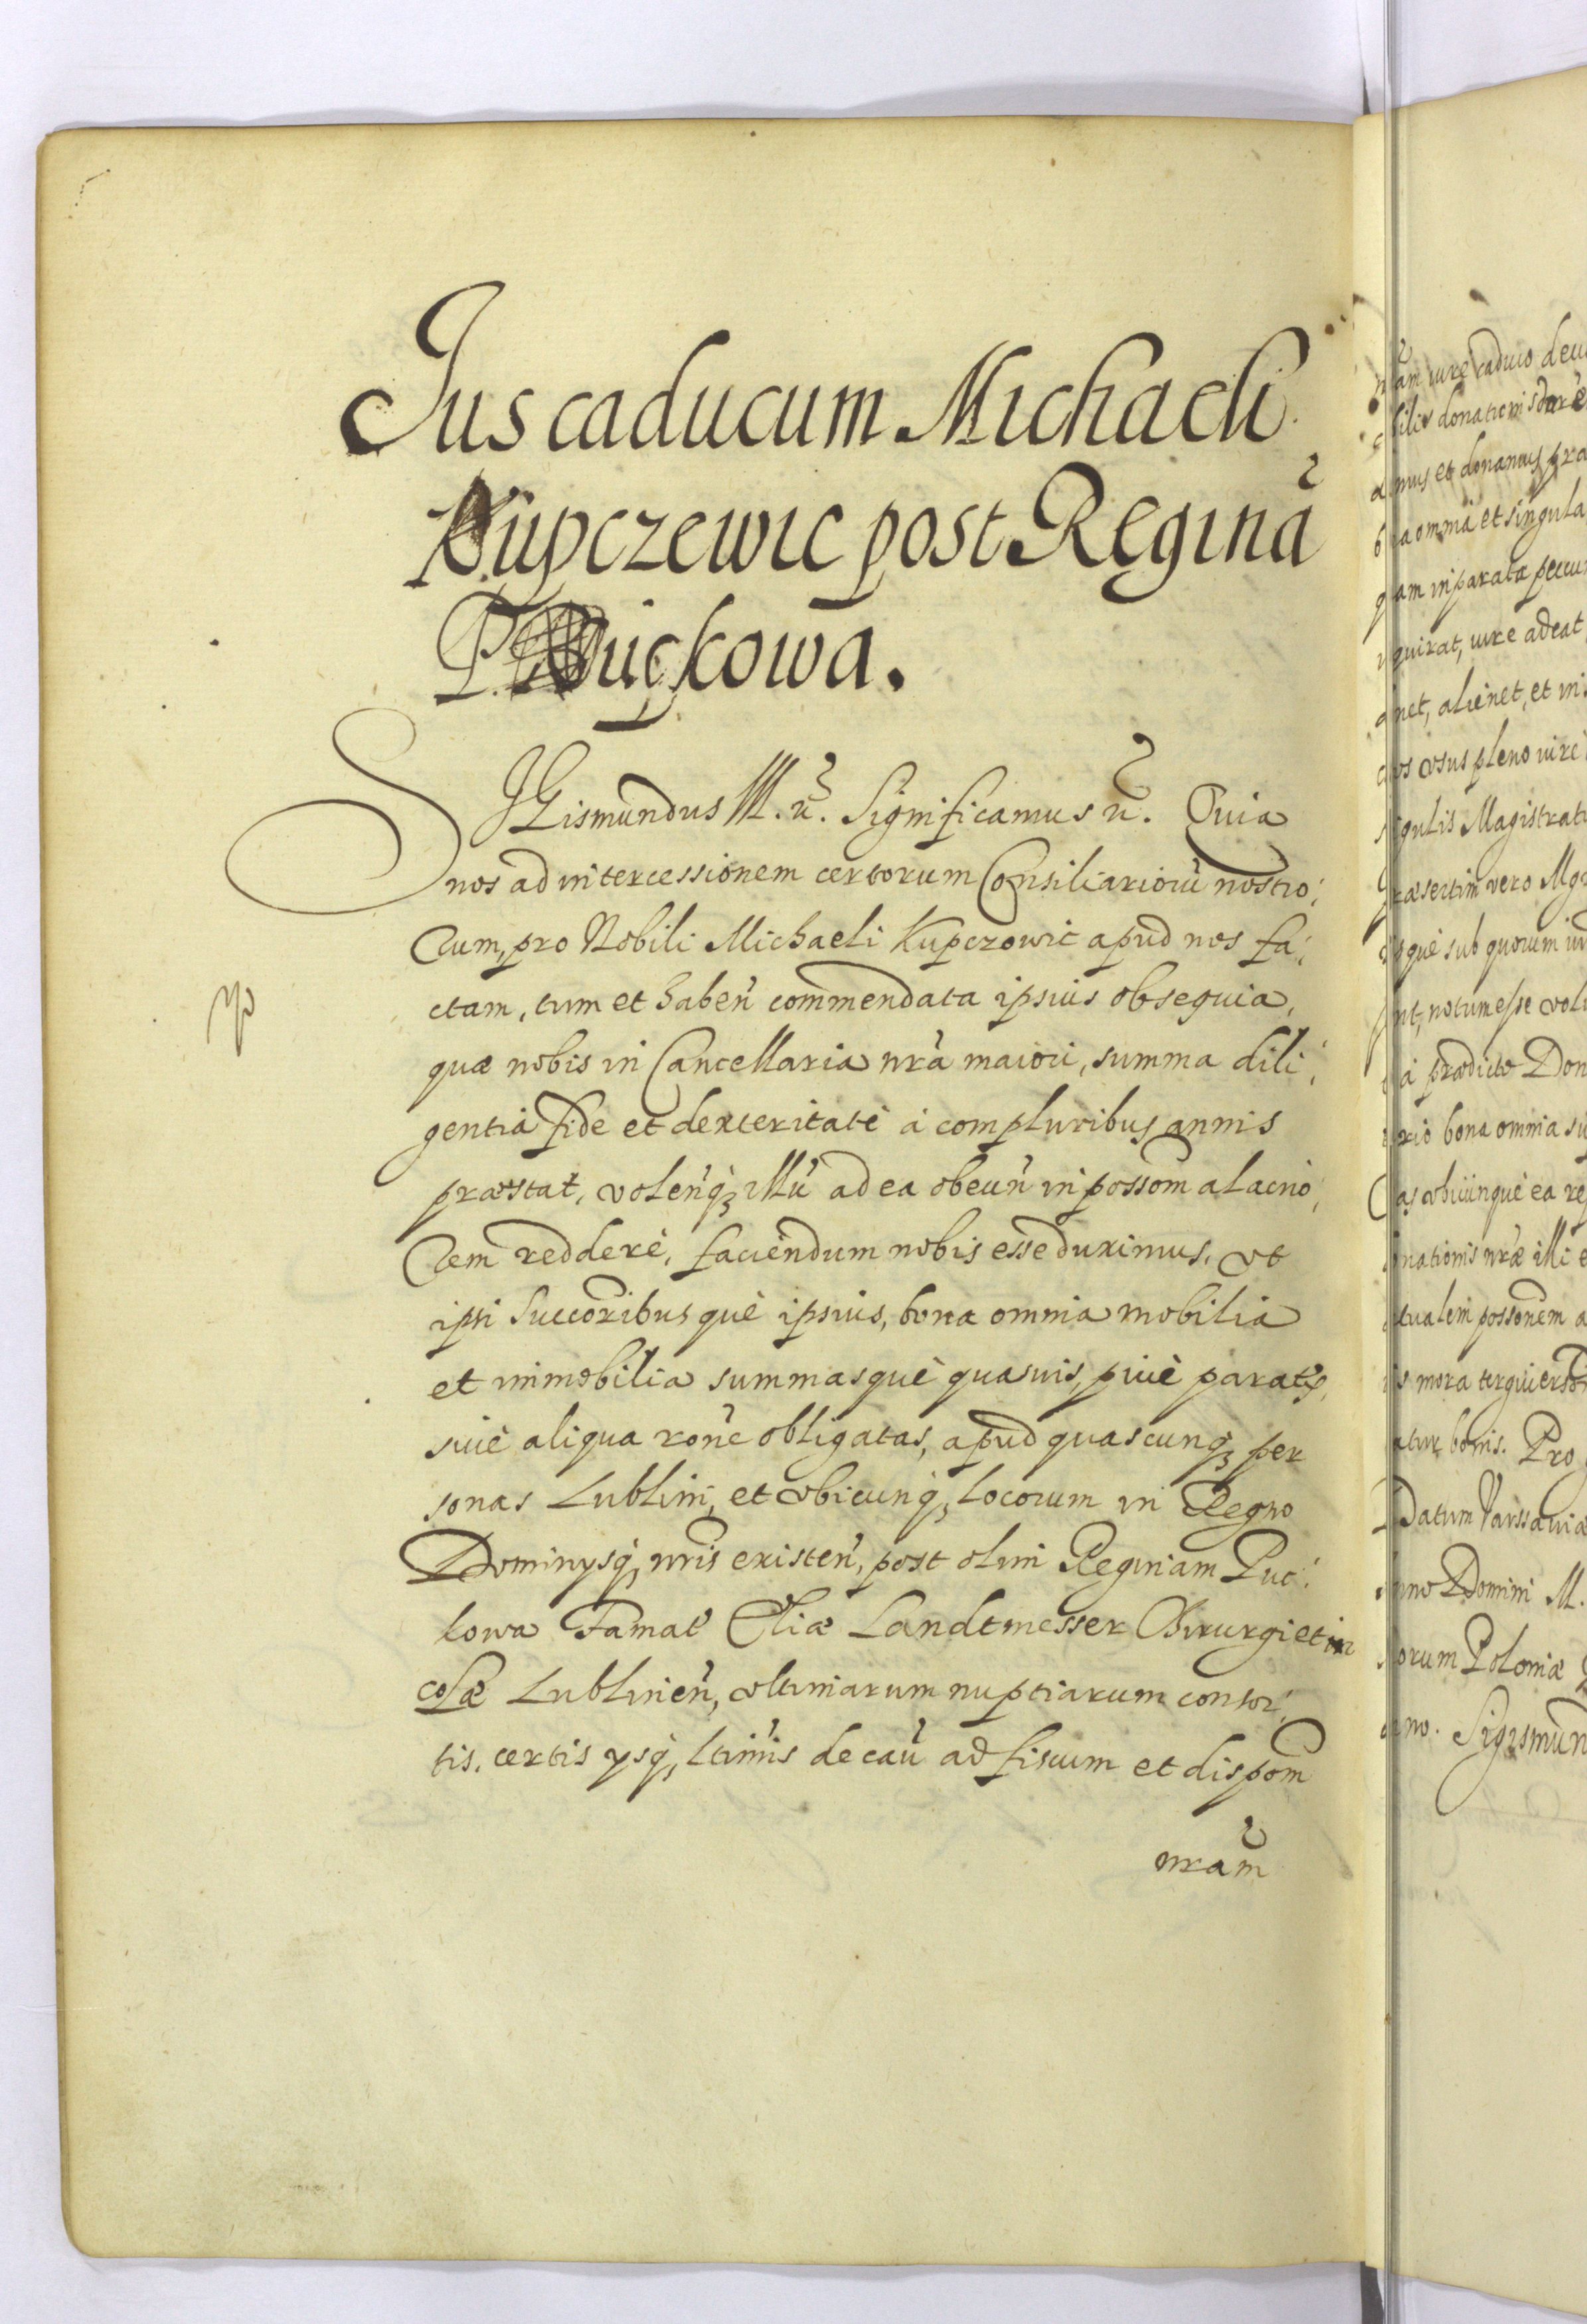 Jus caducum Michaeli
Kupczewic post Reginā
Puckowa.
SIGismundus III. ē. Significamus ē. Quia
nos ad intercessionem certorum Consiliarioru nostro:
rum, pro Nobili Michaeli Kupczowic apud nos fa:
ctam, tum et haben̄ commendata ipsius obsequia,
quæ nobis in Cancellaria nrā maiori, summa dili:
gentia fide et dexteritate à compluribus annis
præstat, volenq; illū ad ea obeun̄ in possom alacrio:
rem reddere, faciendum nobis esse duximus, vt
ipsi Succoribusque ipsius, bona omnia mobilia
et immobilia summasque quasuis, siue paratas,
siue aliqua rone obligatas, apud quascunq; per
sonas Lublini, et vbicunq; locorum in Regno
Dominysq; nris existen̄, post olim Reginam Puc:
kowa Famati Eliæ Landtmesser Chirurgi et in
colæ Lublinen̄, vltimarum nuptiarum consor:
tis, certis ysq; ltimis de cau ad fiscum et dispom
nram
nram iure caduco deuo
bilis donationis
amus et donamus præ
omnia et singula
quam in parata pecu
quirat, iure adeat
net, alienet, et in
vsus pleno iure
singulis Magistratu
Præsertim vero
que sub quorum iur
sint, notum esse volu
à prædicto Don
bona omnia su
cas vbicunque ea re
nationis nræ illi e
ctualem possonem a
mora
atur bonis. Pro
Datum Varssauiæ
Anno Domini M.
norum Poloniæ
anno. Sigismun